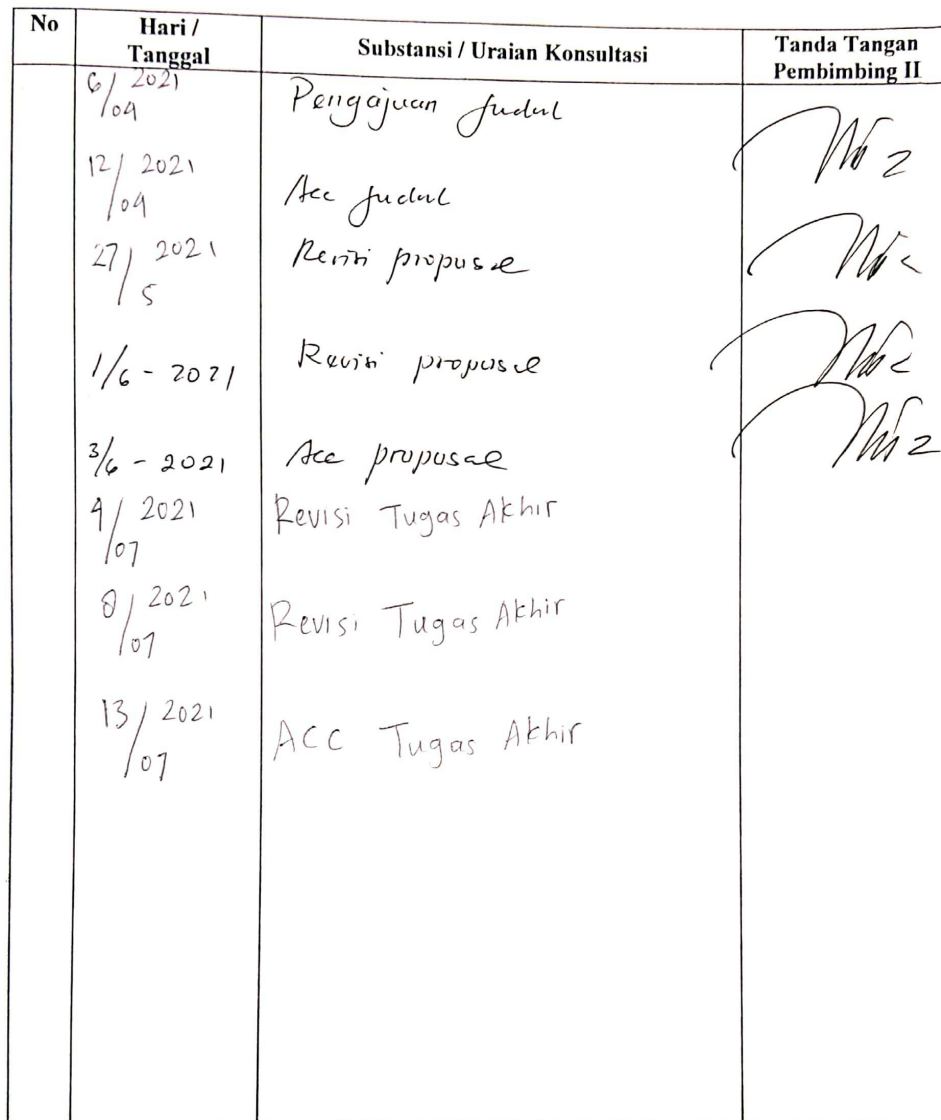 No Hari / Tanggal Substansi / Uraian Konsultasi Tanda Tangan Pembimbing II
6/04 2021 Pengajuan Judul
12/04 2021 Acc Judul
27/5 2021 Revisi proposal
1/6 - 2021 Revisi proposal
3/6 - 2021 Acc proposal
9/07 2021 Revisi Tugas Akhir
8/07 2021 Revisi Tugas Akhir
13/07 2021 ACC Tugas Akhir